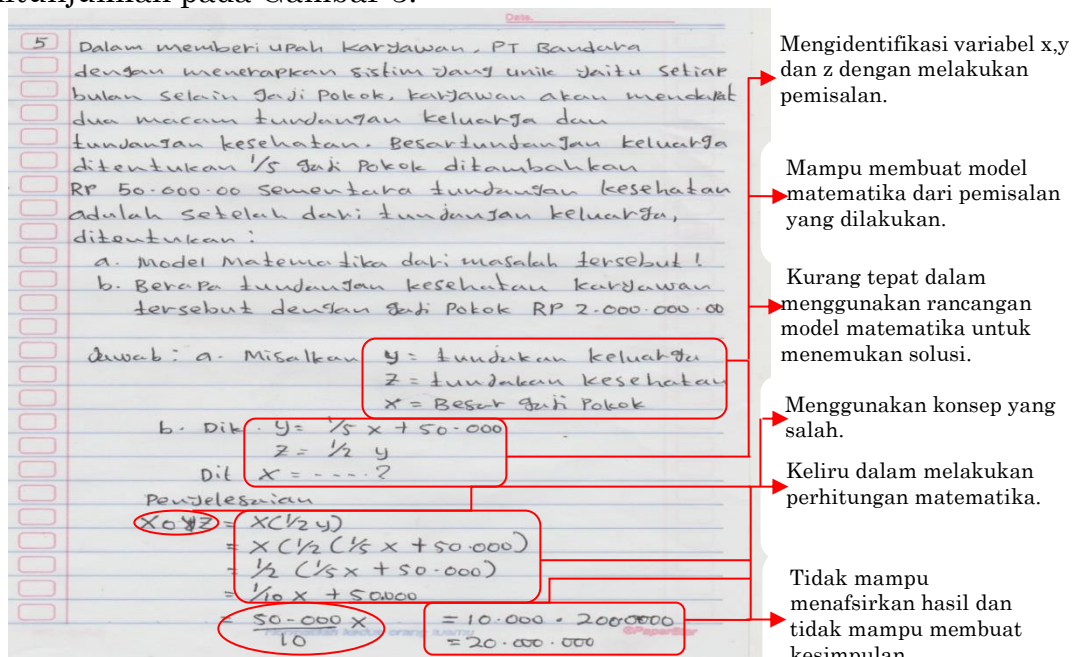 ditunjukkan pada Gambar 3.
Date.
5
Dalam memberi upah Karyawan, PT Bandara
dengan menerapkan sistim yang unik yaitu setiap
bulan selain gaji Pokok, karyawan akan mendapat
dua macam tundangan keluarga dan
tunjangan kesehatan. Besartundangan keluarga
ditentukan 1/5 gaji Pokok ditambahkan
RP 50.000.00 sementara tundangan kesehatan
adalah setelah dari tunjangan keluarga,
ditentukan :
a. Model Matematika dari masalah tersebut !
b. Berapa tundangan kesehatan karyawan
tersebut dengan gaji Pokok RP 2.000.000.00
Jawab : a. Misalkan y = tundakan keluarga
z = tundakan kesehatan
x = Besar gaji Pokok
b. Dik . y = 1/5 x + 50.000
z = 1/2 y
Dit x = ....?
Penyelesaian
= x(1/2 y)
= x (1/2 (1/5 x + 50.000)
= 1/2 (1/5x + 50.000)
= 1/10 x + 50.000
= 50.000 x / 10
= 10.000 . 2000000
= 20.000.000
kedua orang tuamu
©PaperStar
Mengidentifikasi variabel x,y
dan z dengan melakukan
pemisalan.
Mampu membuat model
matematika dari pemisalan
yang dilakukan.
Kurang tepat dalam
menggunakan rancangan
model matematika untuk
menemukan solusi.
Menggunakan konsep yang
salah.
Keliru dalam melakukan
perhitungan matematika.
Tidak mampu
menafsirkan hasil dan
tidak mampu membuat
kesimpulan